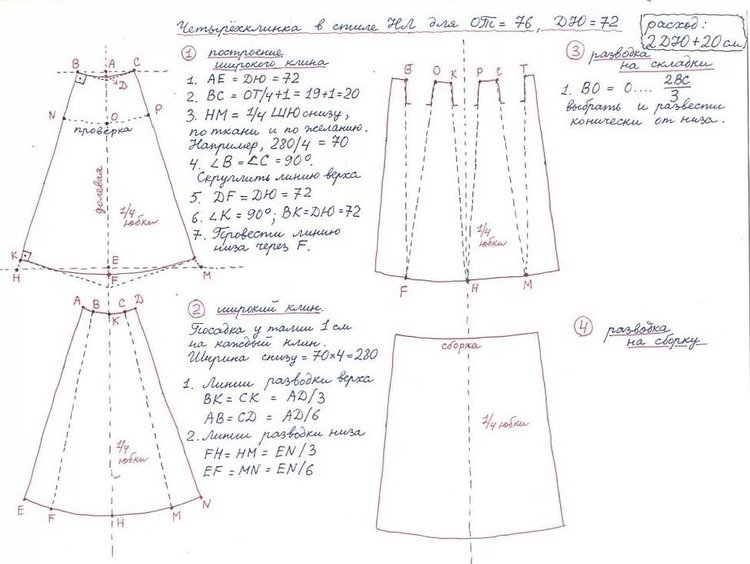 Четырёхклинка в стиле НЛ для ОТ = 76, ДЮ = 72
расход:
2ДЮ + 20 см
1 построение
широкого клина
1. АЕ = ДЮ = 72
2. ВС = ОТ/4+1 = 19+1 = 20
3. НМ = 1/4 ШЮ снизу,
по ткани и по желанию.
Например, 280/4 = 70
4. ∠В = ∠С = 90°.
Скруглить линию верха
5. DF = ДЮ = 72
6. ∠К = 90°; ВК = ДЮ = 72
7. Провести линию
низа через F.
B A C
D
N O P
проверка
долевая
1/4
юбки
K E
H F M
2 широкий клин.
Посадка у талии 1 см
на каждый клин.
Ширина снизу = 70×4 = 280
1. Линии разводки верха
ВК = СК = AD/3
АВ = CD = AD/6
2. Линии разводки низа
FH = HM = EN/3
EF = MN = EN/6
A B C D
K
1/4
юбки
E F H M N
3 разводка
на складки
1. ВО = 0.... 2ВС/3
выбрать и развести
конически от низа.
В О К Р С Т
1/4
юбки
F H M
4 разводка
на сборку
сборка
1/4 юбки